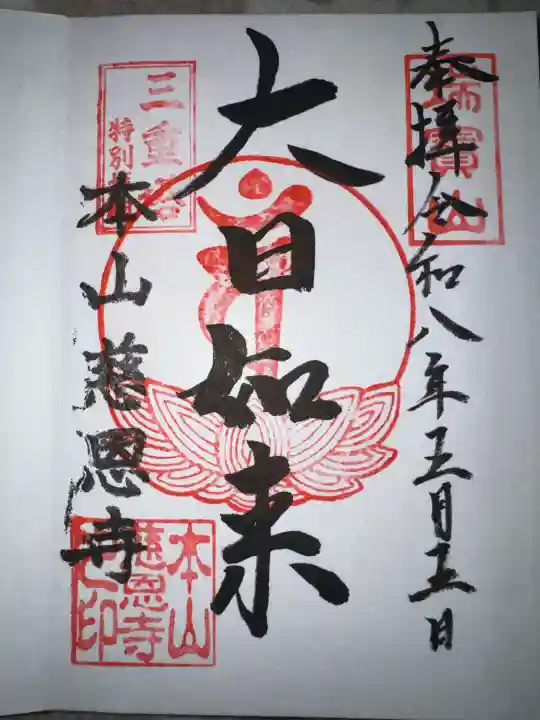 奉拝 令和八年五月五日
瑞寳山
大日如来
三重塔
特別
本山慈恩寺
本山
慈恩寺
印